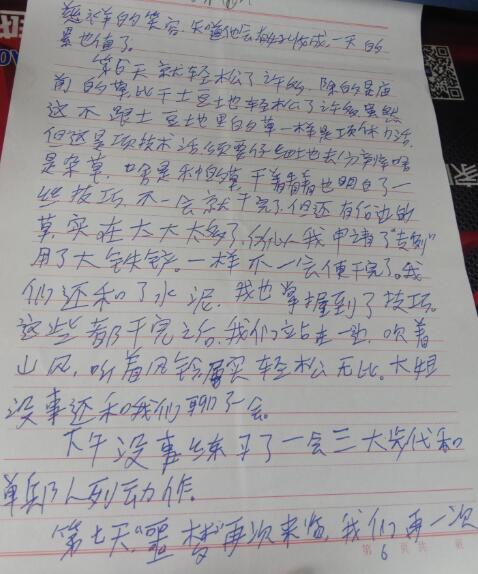 慈祥的笑容,知道他会有成,一天的
累也值了。
第六天就轻松了许多,除的是庙
前的草,比干土豆地轻松了许多,虽然
这不跟土豆地里的草一样是项体力活,
但这是项技术活,须要仔细地去分辨啥
是杂草,啥是种的草,干着着也明白了一
些技巧,不一会就干完了,但还有的
草实在太大太多了,所以我申请了“专利”
用了大铁铲。一样不一会便干完了。我
们还和了水泥,我也掌握到了技巧。
这些都干完之后,我们立站在一处,吹着
山风,听着风铃,属实轻松无比。大姐
没事还和我们聊了一会。
下午没事练习了一会三大步伐和
单兵队列动作。
第七天,“噩梦”再次来临,我们再一次
第 6 页 共 页